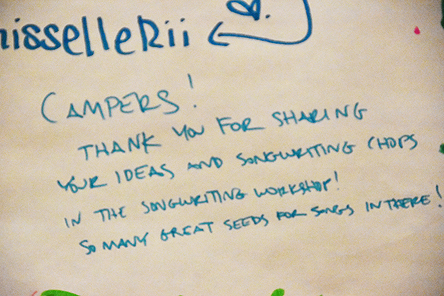 nisselleRii
CAMPERS!
THANK YOU FOR SHARING
YOUR IDEAS AND SONGWRITING CHOPS
IN THE SONGWRITING WORKSHOP!
SO MANY GREAT SEEDS FOR SONGS IN THERE!